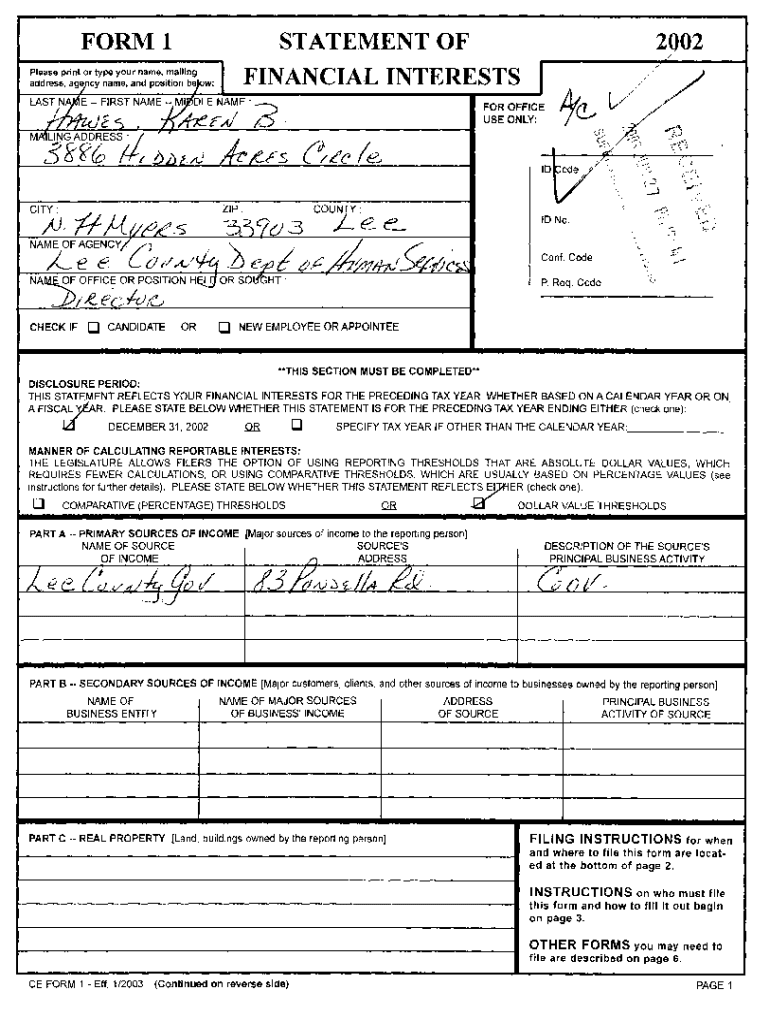 FORM 1 STATEMENT OF 2002
FINANCIAL INTERESTS
Please print or type your name, mailing
address, agency name, and position below:
LAST NAME -- FIRST NAME -- MIDDLE NAME :
HAWES, KAREN B.
MAILING ADDRESS :
3886 HIDDEN ACRES CIRCLE
CITY : ZIP : COUNTY :
N. Ft Myers 33903 Lee
NAME OF AGENCY :
Lee County Dept of Human Services
NAME OF OFFICE OR POSITION HELD OR SOUGHT :
Director
CHECK IF CANDIDATE OR NEW EMPLOYEE OR APPOINTEE
FOR OFFICE
USE ONLY:
A/C
RECEIVED
ID Code
ID No.
Conf. Code
P. Req. Code
**THIS SECTION MUST BE COMPLETED**
DISCLOSURE PERIOD:
THIS STATEMENT REFLECTS YOUR FINANCIAL INTERESTS FOR THE PRECEDING TAX YEAR, WHETHER BASED ON A CALENDAR YEAR OR ON
A FISCAL YEAR. PLEASE STATE BELOW WHETHER THIS STATEMENT IS FOR THE PRECEDING TAX YEAR ENDING EITHER (check one):
DECEMBER 31, 2002 OR SPECIFY TAX YEAR IF OTHER THAN THE CALENDAR YEAR:
MANNER OF CALCULATING REPORTABLE INTERESTS:
THE LEGISLATURE ALLOWS FILERS THE OPTION OF USING REPORTING THRESHOLDS THAT ARE ABSOLUTE DOLLAR VALUES, WHICH
REQUIRES FEWER CALCULATIONS, OR USING COMPARATIVE THRESHOLDS, WHICH ARE USUALLY BASED ON PERCENTAGE VALUES (see
instructions for further details). PLEASE STATE BELOW WHETHER THIS STATEMENT REFLECTS EITHER (check one):
COMPARATIVE (PERCENTAGE) THRESHOLDS OR DOLLAR VALUE THRESHOLDS
PART A -- PRIMARY SOURCES OF INCOME [Major sources of income to the reporting person]
NAME OF SOURCE SOURCE'S DESCRIPTION OF THE SOURCE'S
OF INCOME ADDRESS PRINCIPAL BUSINESS ACTIVITY
Lee County Gov 83 Pondella Rd Gov.
PART B -- SECONDARY SOURCES OF INCOME [Major customers, clients, and other sources of income to businesses owned by the reporting person]
NAME OF NAME OF MAJOR SOURCES ADDRESS PRINCIPAL BUSINESS
BUSINESS ENTITY OF BUSINESS' INCOME OF SOURCE ACTIVITY OF SOURCE
PART C -- REAL PROPERTY [Land, buildings owned by the reporting person]
FILING INSTRUCTIONS for when
and where to file this form are locat-
ed at the bottom of page 2.
INSTRUCTIONS on who must file
this form and how to fill it out begin
on page 3.
OTHER FORMS you may need to
file are described on page 6.
CE FORM 1 - Eff. 1/2003 (Continued on reverse side) PAGE 1